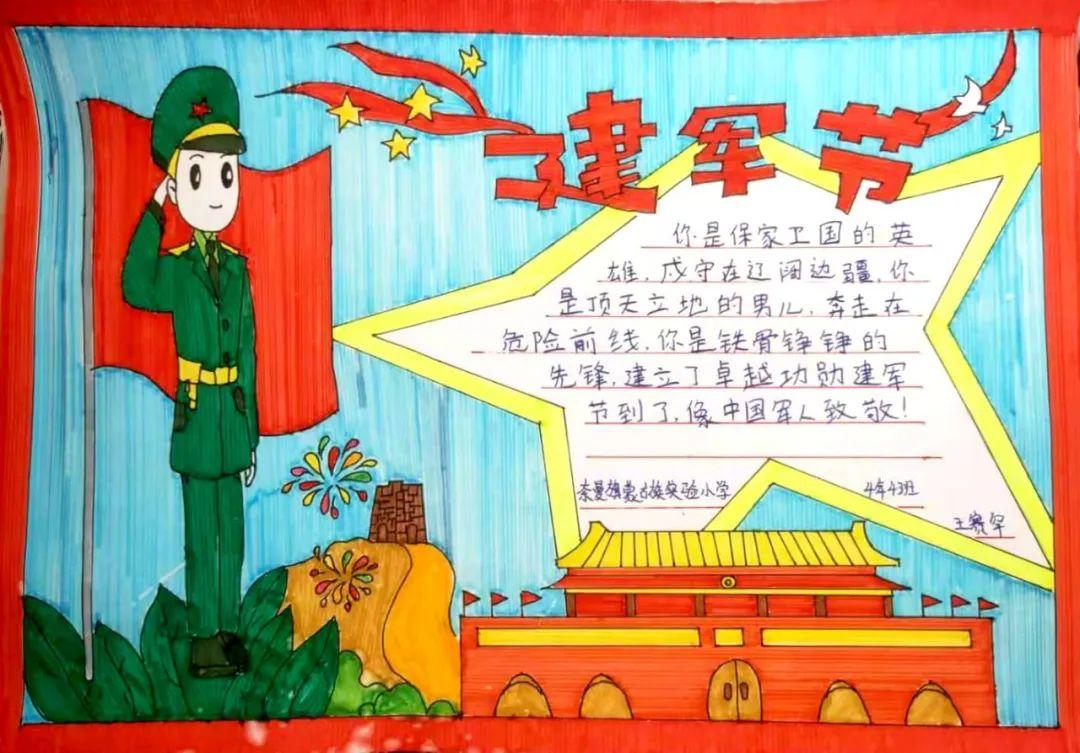 建军节
你是保家卫国的英
雄,戍守在辽阔边疆,你
是顶天立地的男儿,奔走在
危险前线,你是铁骨铮铮的
先锋,建立了卓越功勋建军
节到了,像中国军人致敬!
奈曼旗蒙古族实验小学
4年43班